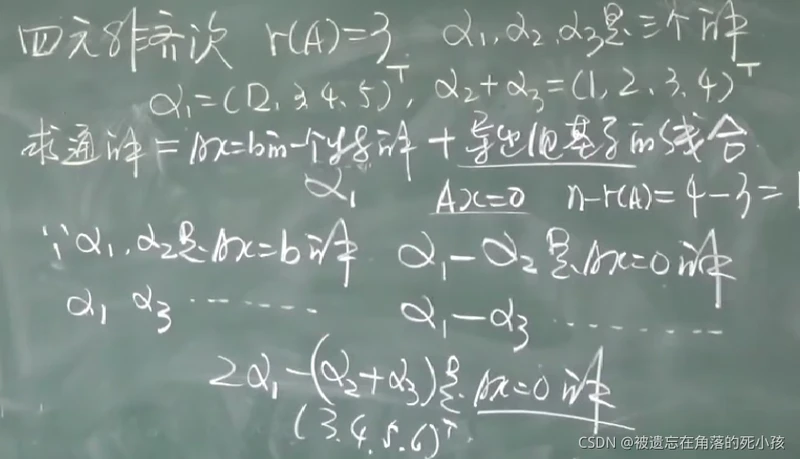 四元非齐次 r(A)=3. α₁,α₂,α₃是三个解
α₁=(2,3,4,5)ᵀ, α₂+α₃=(1,2,3,4)ᵀ
求通解=Ax=b的一个特解+导出组基系的线合
α₁ Ax=0 n-r(A)=4-3=1
∵α₁,α₂是Ax=b解 α₁-α₂是Ax=0解
α₁ α₃ ········ α₁-α₃ ············
2α₁-(α₂+α₃)是Ax=0解
(3.4.5.6)ᵀ
CSDN @被遗忘在角落的死小孩